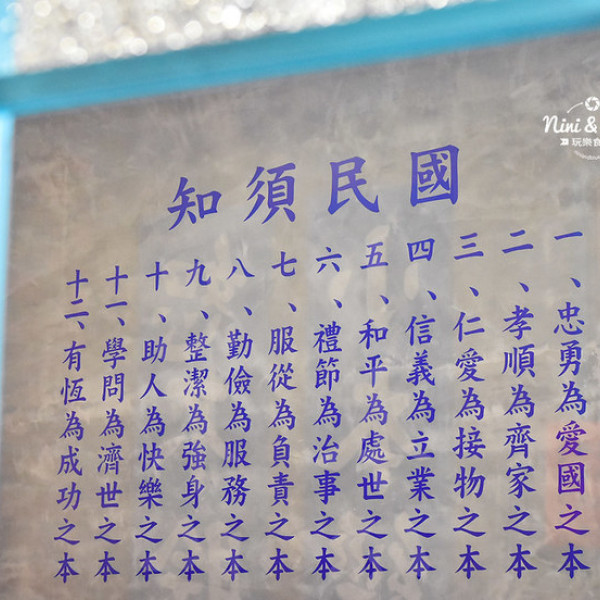 國民須知
一、忠勇為愛國之本
二、孝順為齊家之本
三、仁愛為接物之本
四、信義為立業之本
五、和平為處世之本
六、禮節為治事之本
七、服從為負責之本
八、勤儉為服務之本
九、整潔為強身之本
十、助人為快樂之本
十一、學問為濟世之本
十二、有恆為成功之本
Nini &
玩樂食